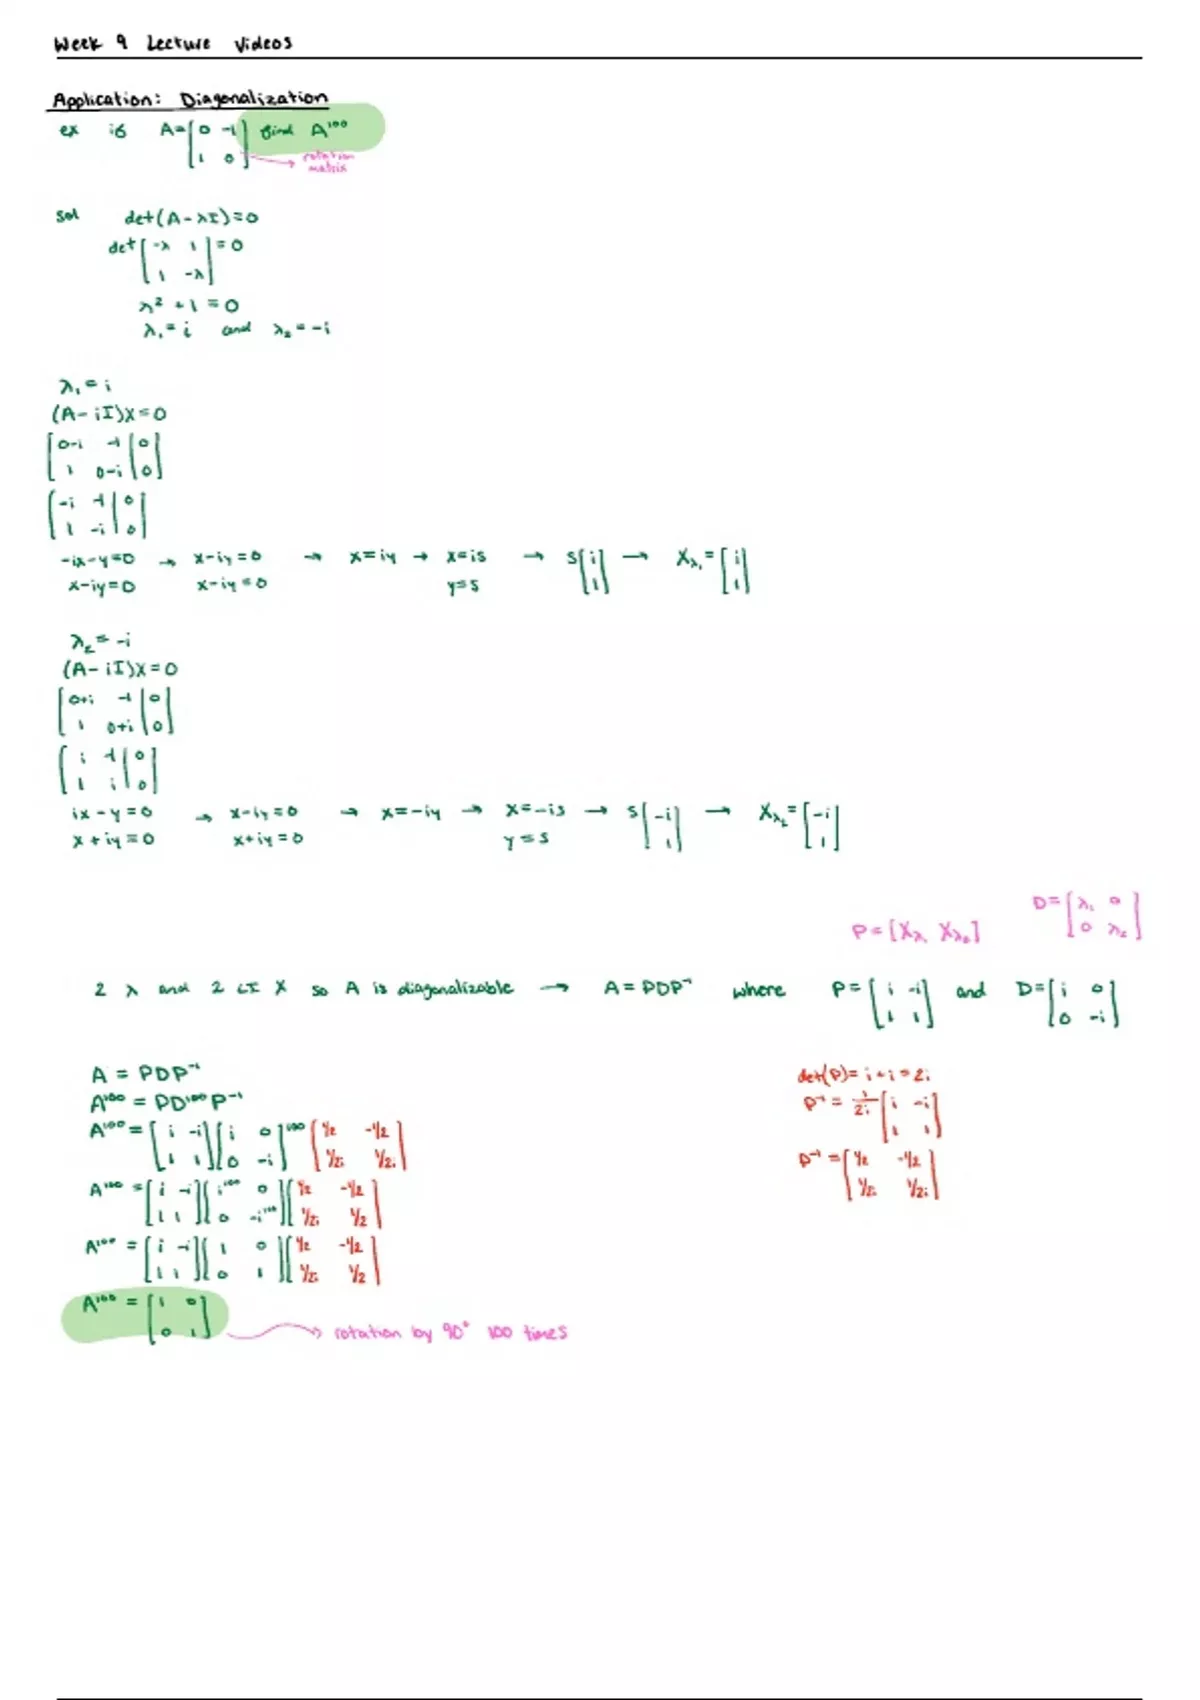 Week 9 Lecture Videos
Application: Diagonalization
ex if A = [0 -1] find A¹⁰⁰
[1 0] → rotation matrix
sol det(A - λI) = 0
det [-λ 1] = 0
[1 -λ]
λ² + 1 = 0
λ₁ = i and λ₂ = -i
λ₁ = i
(A - iI)X = 0
[0-i -1 | 0]
[1 0-i | 0]
[-i -1 | 0]
[1 -i | 0]
-ix - y = 0 → x - iy = 0 → x = iy → x = is → s[i] → Xλ₁ = [i]
x - iy = 0 x - iy = 0 y = s [1] [1]
λ₂ = -i
(A - iI)X = 0
[0+i -1 | 0]
[1 0+i | 0]
[i -1 | 0]
[1 i | 0]
ix - y = 0 → x - iy = 0 → x = -iy → x = -is → s[-i] → Xλ₂ = [-i]
x + iy = 0 x + iy = 0 y = s [1] [1]
P = [Xλ₁ Xλ₂] D = [λ₁ 0]
[0 λ₂]
2 λ and 2 LI X so A is diagonalizable → A = PDP⁻¹ where P = [i -i] and D = [i 0]
[1 1] [0 -i]
A = PDP⁻¹
A¹⁰⁰ = PD¹⁰⁰P⁻¹
A¹⁰⁰ = [i -i][i 0]¹⁰⁰ [1/2 -1/2]
[1 1][0 -i] [1/2i 1/2i]
A¹⁰⁰ = [i -i][i¹⁰⁰ 0][1/2 -1/2]
[1 1][0 -i¹⁰⁰][1/2i 1/2]
A¹⁰⁰ = [i -i][1 0][1/2 -1/2]
[1 1][0 1][1/2i 1/2]
A¹⁰⁰ = [1 0]
[0 1] → rotation by 90° 100 times
det(P) = i + i = 2i
P⁻¹ = 1/2i [i -i]
[1 1]
P⁻¹ = [1/2 -1/2]
[1/2i 1/2i]